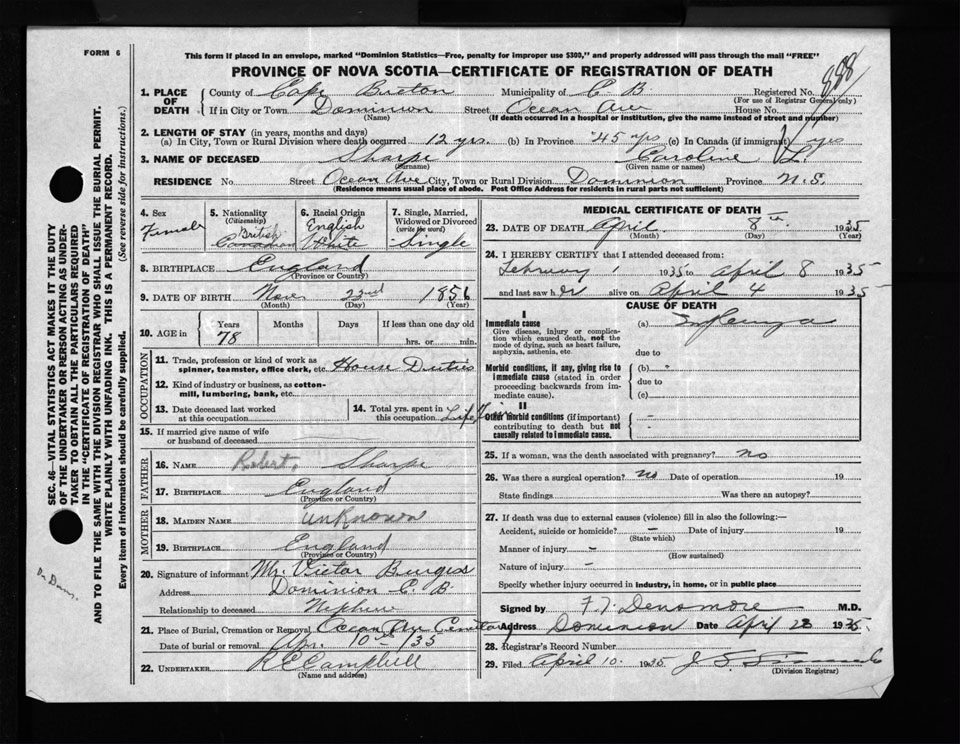 FORM 6
This form if placed in an envelope, marked "Dominion Statistics—Free, penalty for improper use $300," and properly addressed will pass through the mail "FREE"
PROVINCE OF NOVA SCOTIA—CERTIFICATE OF REGISTRATION OF DEATH
888
1. PLACE OF DEATH County of Cape Breton Municipality of C B Registered No.
(For use of Registrar General only)
If in City or Town Dominion Street Ocean Ave House No.
(Name) (If death occurred in a hospital or institution, give the name instead of street and number)
2. LENGTH OF STAY (in years, months and days)
(a) In City, Town or Rural Division where death occurred 12 yrs. (b) In Province 45 yrs (c) In Canada (if immigrant) yrs
3. NAME OF DECEASED Sharpe Caroline L.
(Surname) (Given name or names)
RESIDENCE No Street Ocean Ave City, Town or Rural Division Dominion Province N.S.
(Residence means usual place of abode. Post Office Address for residents in rural parts not sufficient)
4. Sex Female
5. Nationality (Citizenship) British Canadian
6. Racial Origin English White
7. Single, Married, Widowed or Divorced (write the word) Single
8. BIRTHPLACE England
(Province or Country)
9. DATE OF BIRTH Nov. 22nd 1856
(Month) (Day) (Year)
10. AGE in Years 78 Months Days If less than one day old hrs. or min.
OCCUPATION
11. Trade, profession or kind of work as spinner, teamster, office clerk, etc. House Duties
12. Kind of industry or business, as cotton-mill, lumbering, bank, etc.
13. Date deceased last worked at this occupation
14. Total yrs. spent in this occupation Life
15. If married give name of wife or husband of deceased
FATHER
16. NAME Robert Sharpe
17. BIRTHPLACE England
(Province or Country)
MOTHER
18. MAIDEN NAME unknown
19. BIRTHPLACE England
(Province or Country)
20. Signature of informant Mr. Victor Burges
Address Dominion C. B
Relationship to deceased Nephew
21. Place of Burial, Cremation or Removal Ocean Ave Cemetery
Date of burial or removal Apr. 10th /35
22. UNDERTAKER R C Campbell
(Name and address)
MEDICAL CERTIFICATE OF DEATH
23. DATE OF DEATH April 8th 1935
(Month) (Day) (Year)
24. I HEREBY CERTIFY that I attended deceased from:
February 1 1935 to April 8 1935
and last saw her alive on April 4 1935
CAUSE OF DEATH
I
Immediate cause
Give disease, injury or complication which caused death, not the mode of dying, such as heart failure, asphyxia, asthenia, etc
(a)
due to
Morbid conditions, if any, giving rise to immediate cause (stated in order proceeding backwards from immediate cause).
(b)
due to
(c)
II
Other morbid conditions (if important) contributing to death but not causally related to immediate cause.
25. If a woman, was the death associated with pregnancy? no
26. Was there a surgical operation? no Date of operation 19
State findings Was there an autopsy?
27. If death was due to external causes (violence) fill in also the following:—
Accident, suicide or homicide? – Date of injury 19
(State which)
Manner of injury –
(How sustained)
Nature of injury –
Specify whether injury occurred in industry, in home, or in public place
Signed by F. J. Densmore M.D.
Address Dominion Date April 28 1935
28. Registrar's Record Number
29. Filed April 10. 1935
(Division Registrar)
SEC. 46—VITAL STATISTICS ACT MAKES IT THE DUTY
OF THE UNDERTAKER OR PERSON ACTING AS UNDER-
TAKER TO OBTAIN ALL THE PARTICULARS REQUIRED
IN THE "CERTIFICATE OF REGISTRATION OF DEATH"
AND TO FILE THE SAME WITH THE DIVISION REGISTRAR WHO SHALL ISSUE THE BURIAL PERMIT.
WRITE PLAINLY WITH UNFADING INK. THIS IS A PERMANENT RECORD.
Every item of information should be carefully supplied. (See reverse side for instructions.)